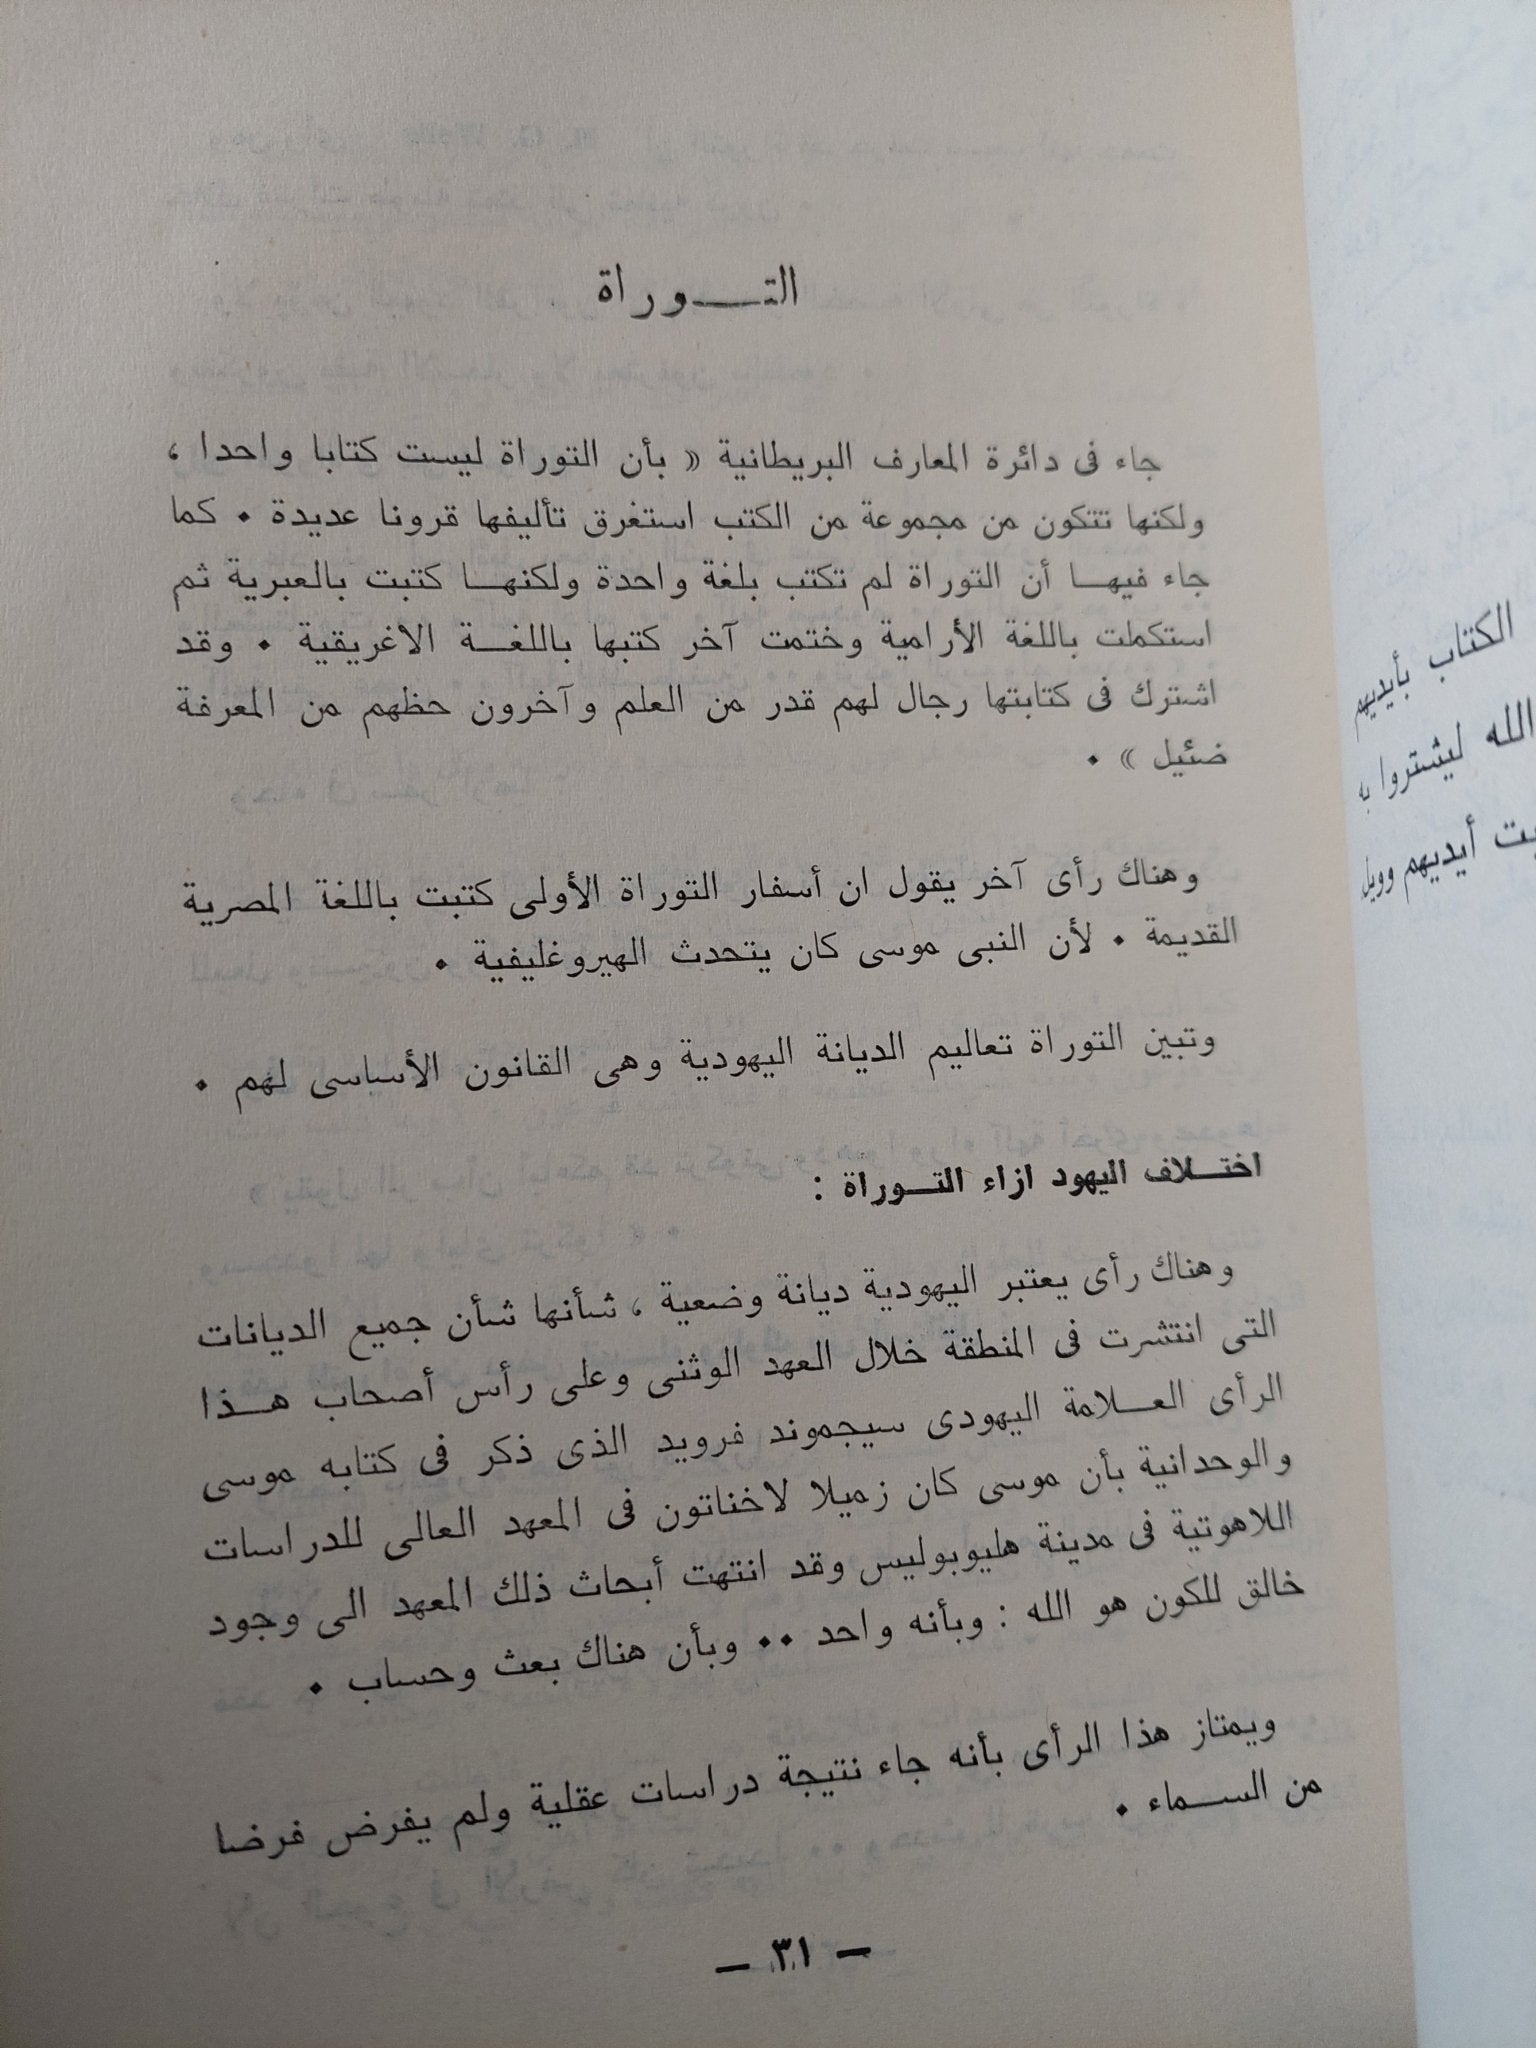 التـــوراة
جاء فى دائرة المعارف البريطانية « بأن التوراة ليست كتابا واحدا ،
ولكنها تتكون من مجموعة من الكتب استغرق تأليفها قرونا عديدة • كما
جاء فيهـا أن التوراة لم تكتب بلغة واحدة ولكنهـا كتبت بالعبرية ثم
استكملت باللغة الأرامية وختمت آخر كتبها باللغـة الاغريقية • وقد
اشترك فى كتابتها رجال لهم قدر من العلم وآخرون حظهم من المعرفة
ضئيل » •
وهناك رأى آخر يقول ان أسفار التوراة الأولى كتبت باللغة المصرية
القديمة • لأن النبى موسى كان يتحدث الهيروغليفية •
وتبين التوراة تعاليم الديانة اليهودية وهى القانون الأساسى لهم •
اختـلاف اليهود ازاء التـوراة :
وهناك رأى يعتبر اليهودية ديانة وضعية ، شأنها شأن جميع الديانات
التى انتشرت فى المنطقة خلال العهد الوثنى وعلى رأس أصحاب هـذا
الرأى العـلامة اليهودى سيجموند فرويد الذى ذكر فى كتابه موسى
والوحدانية بأن موسى كان زميلا لاخناتون فى المعهد العالى للدراسات
اللاهوتية فى مدينة هليوبوليس وقد انتهت أبحاث ذلك المعهد الى وجود
خالق للكون هو الله : وبأنه واحد •• وبأن هناك بعث وحساب •
ويمتاز هذا الرأى بأنه جاء نتيجة دراسات عقلية ولم يفرض فرضا
من السـماء •
— ٣١ —
الكتاب بأيديهم
الله ليشتروا به
أيديهم وويل